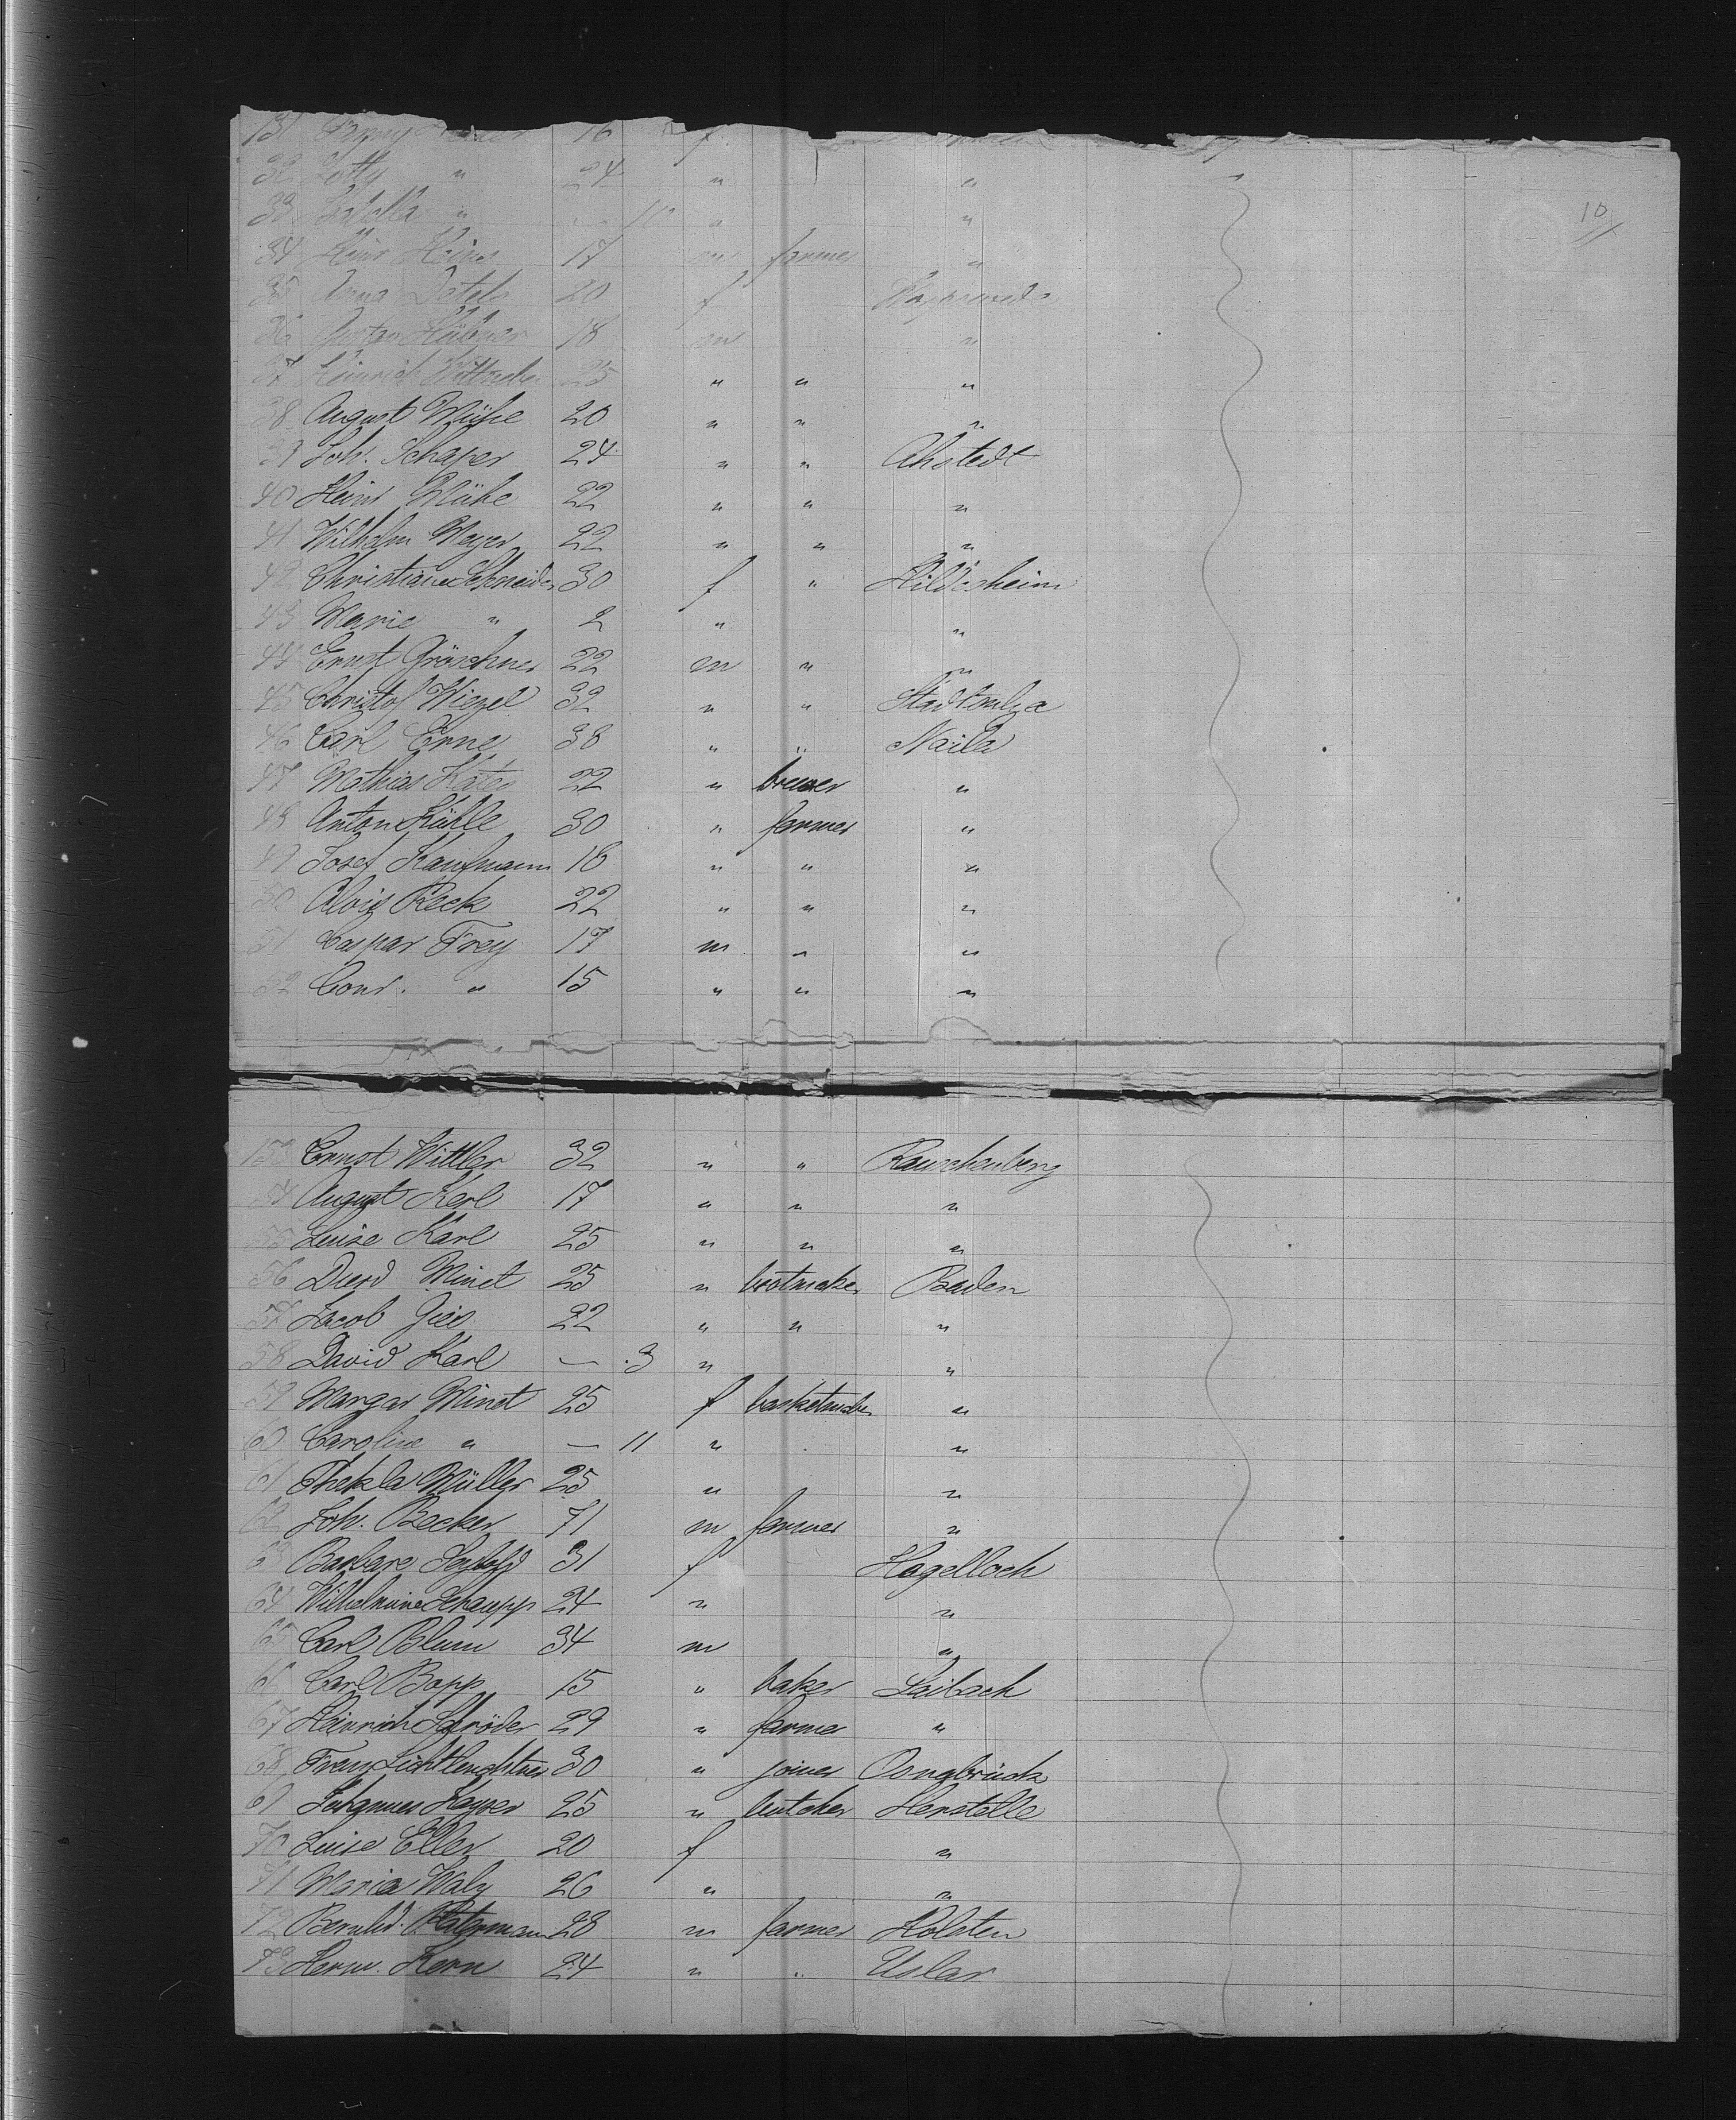 131 16 f
32 Lotty " 24 " "
10
33 " — 10 " "
34 Heinr Heine 17 m farmer "
35 Anna Detels 20 f
36 Gustav Hübner 18 m "
37 Heinrich 25 " " "
38 August Mühe 20 " " "
39 Joh. Schaper 24 " " Ahstedt
40 Heinr Mühe 22 " " "
41 Wilhelm Meyer 22 " " "
42 Christiane Schneider 30 f " Hildesheim
43 Marie " 2 " "
44 Ernst Gröschner 22 m " "
45 Christof Wiegel 32 " " Stadtsulza
46 Carl Erne 38 " " Naila
47 Mathias 22 " brewer "
48 Anton Kühle 30 " farmer "
49 Josef Kaufmann 18 " " "
50 Alois Keck 22 " " "
51 Caspar Frey 17 m " "
52 Conr. " 15 " " "
153 Ernst Wittler 32 " " Rauschenberg
54 August Kerl 17 " " "
55 Luise Karl 25 " " "
56 Minet 25 " bootmaker Baden
57 Jacob Gies 22 " " "
58 David Karl — 3 " "
59 Margar Minet 25 f basketmaker "
60 Caroline " — 11 " "
61 Thekla Müller 25 " "
62 Joh. Becker 71 m farmer "
63 Barbara 31 f Hagelloch
64 Wilhelmine Schaupp 24 " "
65 Carl Blum 34 m "
66 Carl Bopp 15 " baker Laibach
67 Heinrich Schröder 29 " farmer "
68 Franz Lichtleuchtner 30 " joiner Osnabrück
69 Johannes Keyser 25 " butcher Herstelle
70 Luise Eller 20 f "
71 Maria Waly 26 " "
72 Bernhd. 28 m farmer Holsten
73 Herm. Kern 24 " " Uslar